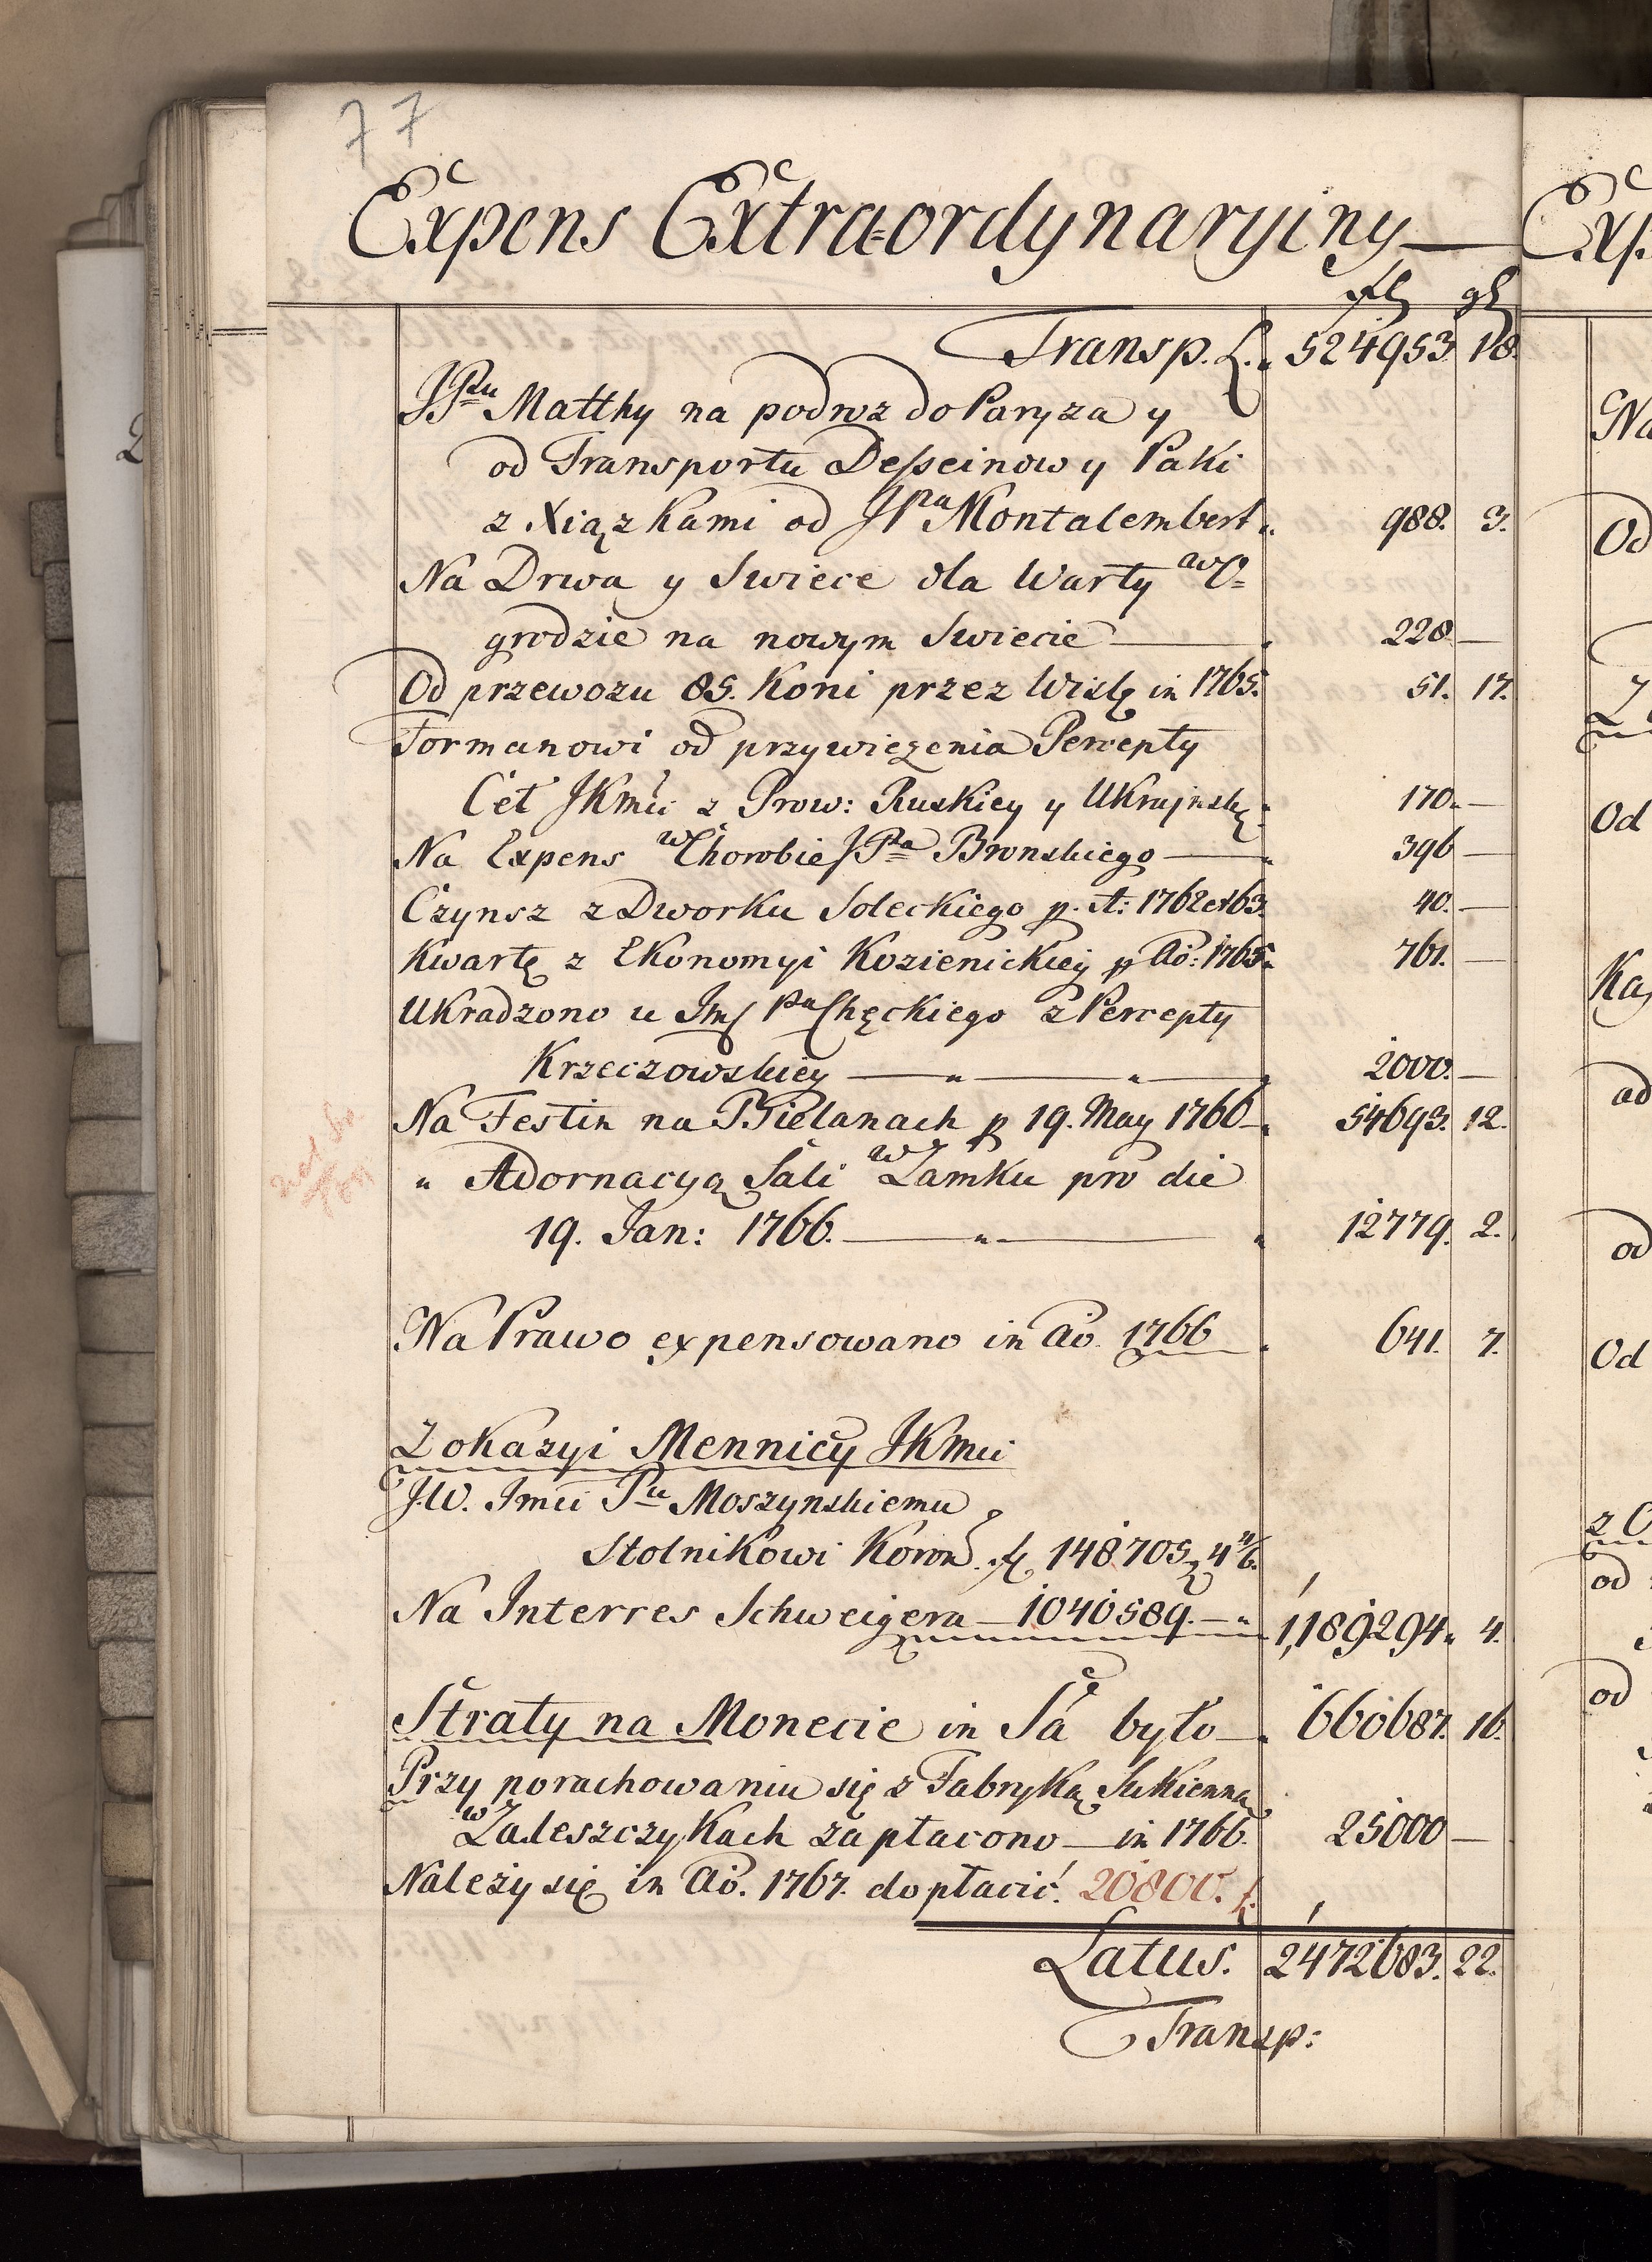 77
Expens Extra=ordynaryiny
fl gl
Transp. L. 524953. 18.
JPnu Matthy na podroz do Paryza y
od Transportu Desseinow y Paki
z Xiązkami od JPna Montalembert 988. 3.
Na Drwa y Swiece dla Warty w O=
grodzie na nowym Swiecie 228. —
Od przewozu 85. Koni przez Wisłę in 1765. 51. 17.
Formanowi od przywiezenia Percepty
Ceł JKmci z Prow: Ruskiey y Ukrainsk 170. —
Na Expens w Chorobie JPna Bronskiego 396 —
Czynsz z Dworku Soleckiego p. A: 1762 et 63. 40. —
Kwartę z Ekonomyi Kozienickiey p Ao: 1765. 761. —
Ukradzono u Jm Pna Chęckiego z Percepty
Krzeczowskiey 2000. —
Na Festin na Bielanach p 19. May 1766 54693. 12.
" Adornacyą Sali w Zamku pro die
19. Jan: 1766. 12779. 2.
Na Prawo expensowano in Ao. 1766 641. 7.
Z okazyi Mennicy JKmci
J.W. Jmci Pnu Moszynskiemu
Stolnikowi Koron. fl. 148705 4
Na Interres Schweigera — 1040589. — 1,189294. 4.
Straty na Monecie in Sa było 660687. 16.
Przy porachowaniu się z Fabryką Sukienną
w Zaleszczykach zapłacono — in 1766. 25000 —
Należy się in Ao. 1767. dopłacić. 20800. f.
Latus. 2472683. 22.
Transp: